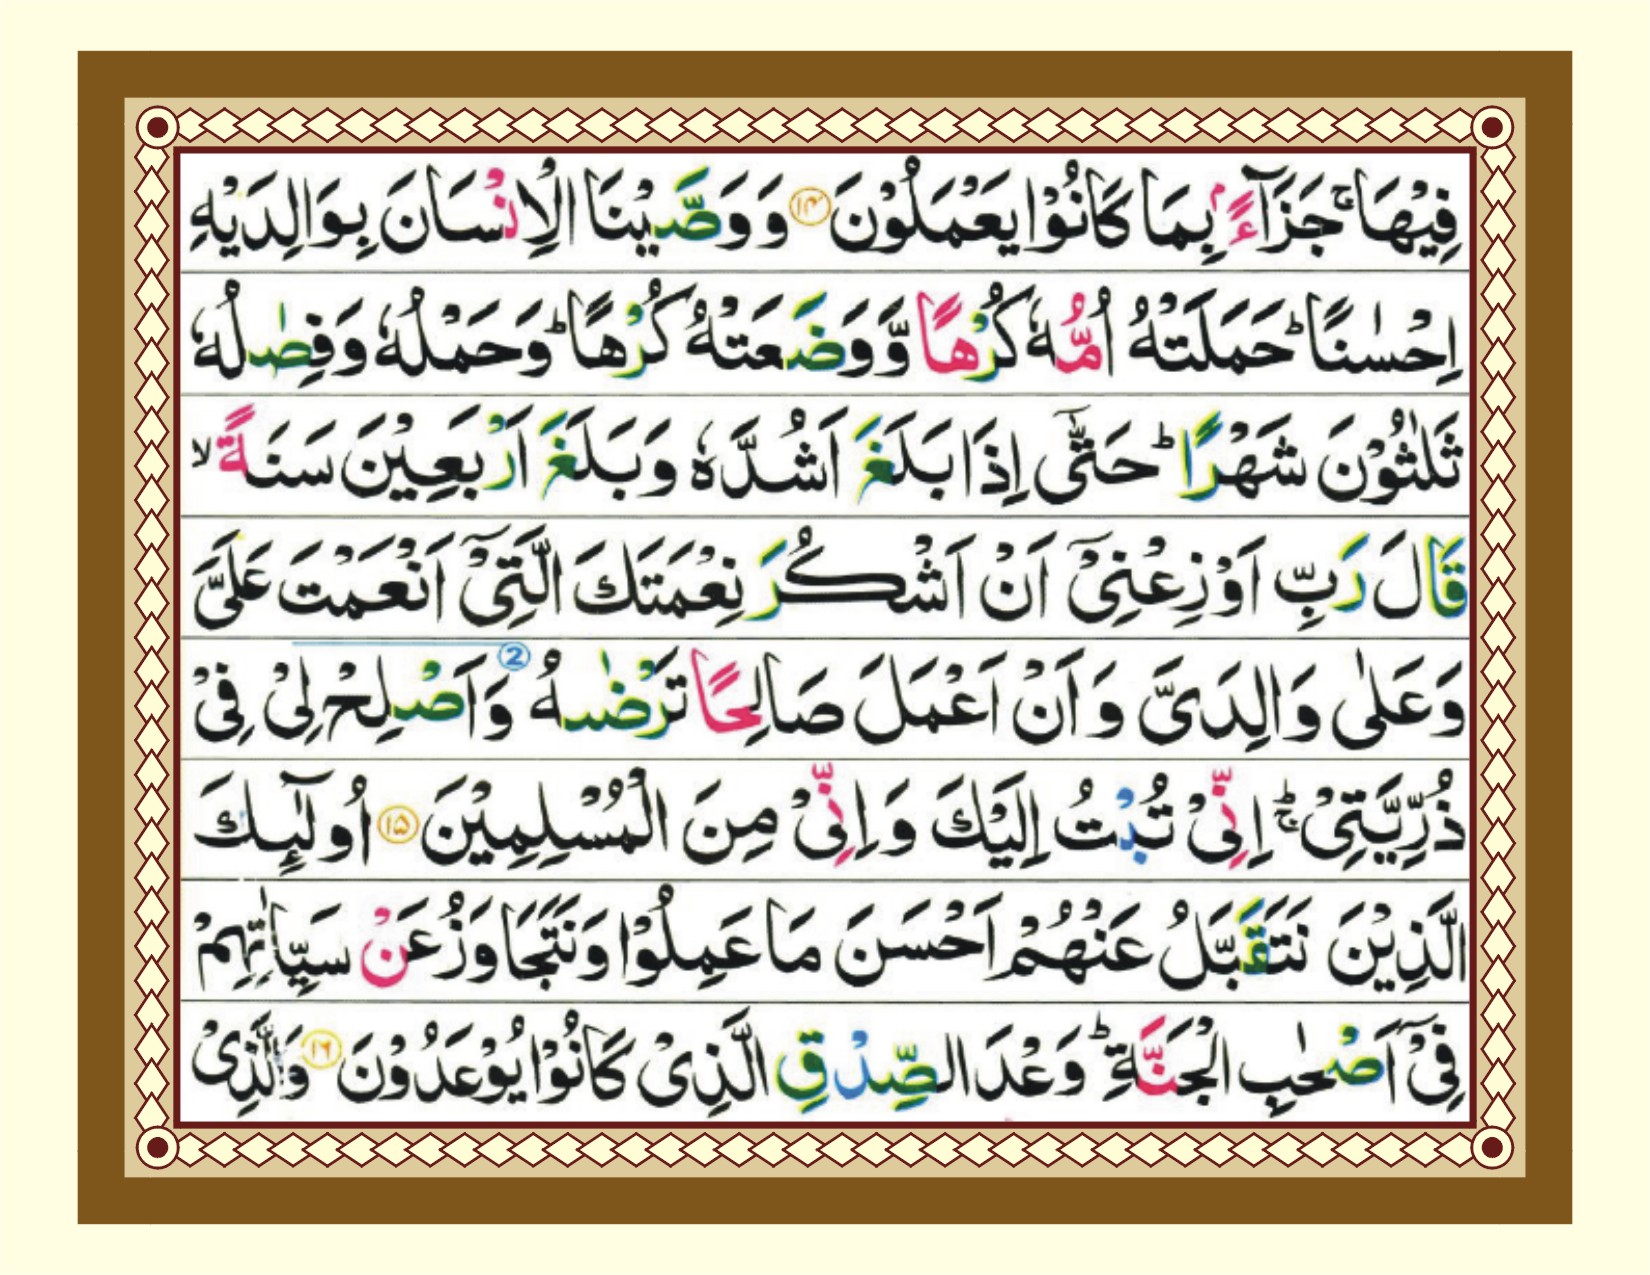 فِيْهَا ۚ جَزَآءًۢ بِمَا كَانُوْا يَعْمَلُوْنَ ⑭ وَ وَصَّيْنَا الْاِنْسَانَ بِوَالِدَيْهِ
اِحْسٰنًا ؕ حَمَلَتْهُ اُمُّهٗ كُرْهًا وَّ وَضَعَتْهُ كُرْهًا ؕ وَحَمْلُهٗ وَفِصٰلُهٗ
ثَلٰثُوْنَ شَهْرًا ؕ حَتّٰٓى اِذَا بَلَغَ اَشُدَّهٗ وَبَلَغَ اَرْبَعِيْنَ سَنَةً ۙ
قَالَ رَبِّ اَوْزِعْنِيْٓ اَنْ اَشْكُرَ نِعْمَتَكَ الَّتِيْٓ اَنْعَمْتَ عَلَيَّ
وَعَلٰى وَالِدَيَّ وَاَنْ اَعْمَلَ صَالِحًا تَرْضٰىهُ ② وَاَصْلِحْ لِيْ فِيْ
ذُرِّيَّتِيْ ۚؕ اِنِّيْ تُبْتُ اِلَيْكَ وَاِنِّيْ مِنَ الْمُسْلِمِيْنَ ⑮ اُولٰٓئِكَ
الَّذِيْنَ نَتَقَبَّلُ عَنْهُمْ اَحْسَنَ مَا عَمِلُوْا وَنَتَجَاوَزُ عَنْ سَيِّاٰتِهِمْ
فِيْٓ اَصْحٰبِ الْجَنَّةِ ؕ وَعْدَ الصِّدْقِ الَّذِيْ كَانُوْا يُوْعَدُوْنَ ⑯ وَالَّذِيْ